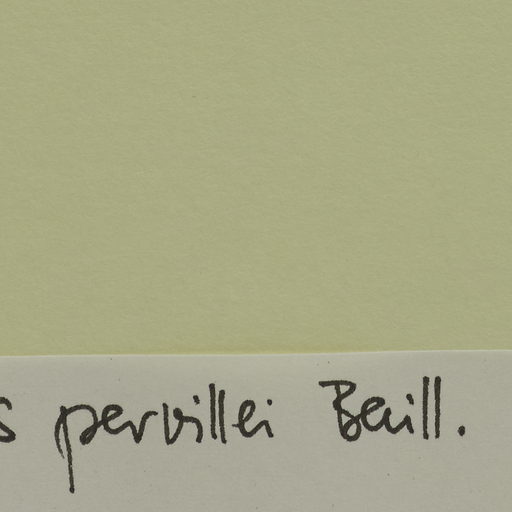 s pervillei Baill.